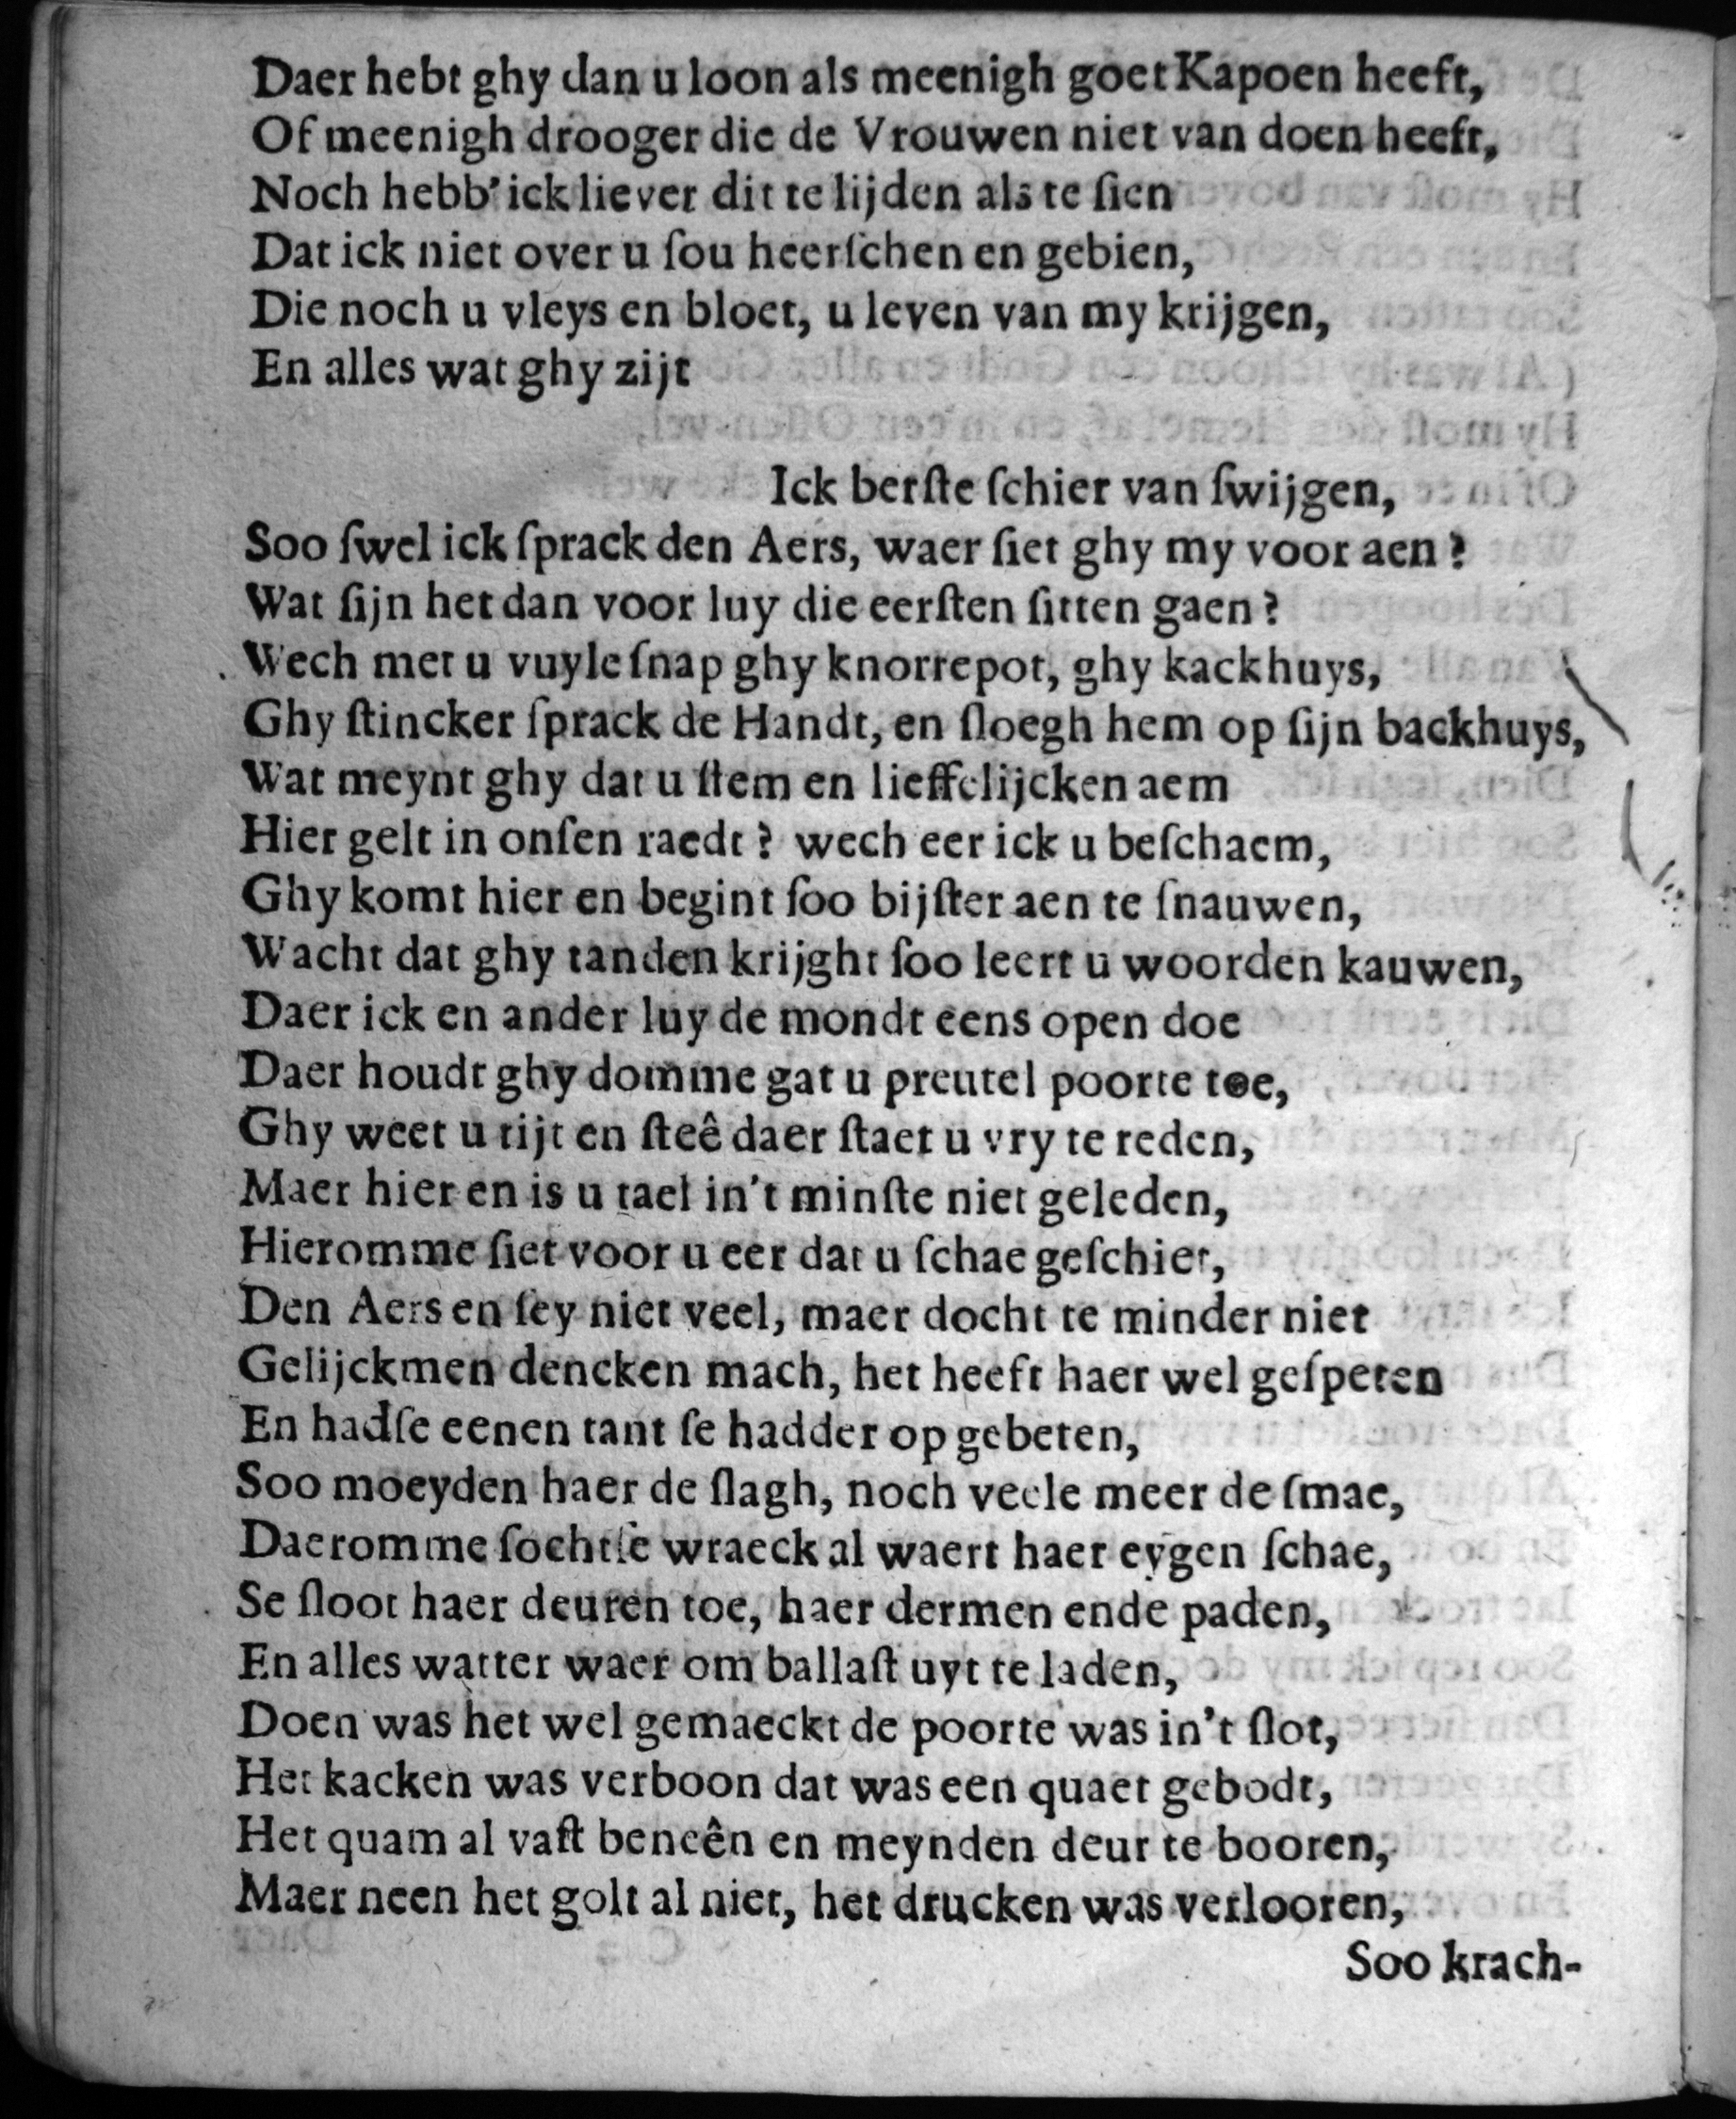 Daer hebt ghy dan u loon als meenigh goet Kapoen heeft,
Of meenigh drooger die de Vrouwen niet van doen heeft,
Noch hebb' ick liever dit te lijden als te ſien
Dat ick niet over u ſou heerſchen en gebien,
Die noch u vleys en bloet, u leven van my krijgen,
En alles wat ghy zijt
Ick berſte ſchier van ſwijgen,
Soo ſwel ick ſprack den Aers, waer ſiet ghy my voor aen?
Wat ſijn het dan voor luy die eerſten ſitten gaen?
Wech met u vuyle ſnap ghy knorrepot, ghy kackhuys,
Ghy ſtincker ſprack de Handt, en ſloegh hem op ſijn backhuys,
Wat meynt ghy dat u ſtem en lieffelijcken aem
Hier gelt in onſen raedt? wech eer ick u beſchaem,
Ghy komt hier en begint ſoo bijſter aen te ſnauwen,
Wacht dat ghy tanden krijght ſoo leert u woorden kauwen,
Daer ick en ander luy de mondt eens open doe
Daer houdt ghy domme gat u preutel poorte toe,
Ghy weet u tijt en ſteê daer ſtaet u vry te reden,
Maer hier en is u tael in't minſte niet geleden,
Hieromme ſiet voor u eer dat u ſchae geſchiet,
Den Aers en ſey niet veel, maer docht te minder niet
Gelijckmen dencken mach, het heeft haer wel geſpeten
En hadſe eenen tant ſe hadder op gebeten,
Soo moeyden haer de ſlagh, noch veele meer de ſmae,
Daeromme ſochtſe wraeck al waert haer eygen ſchae,
Se ſloot haer deuren toe, haer dermen ende paden,
En alles watter waer om ballaſt uyt te laden,
Doen was het wel gemaeckt de poorte was in't ſlot,
Het kacken was verboon dat was een quaet gebodt,
Het quam al vaſt beneên en meynden deur te booren,
Maer neen het golt al niet, het drucken was verlooren,
Soo krach-